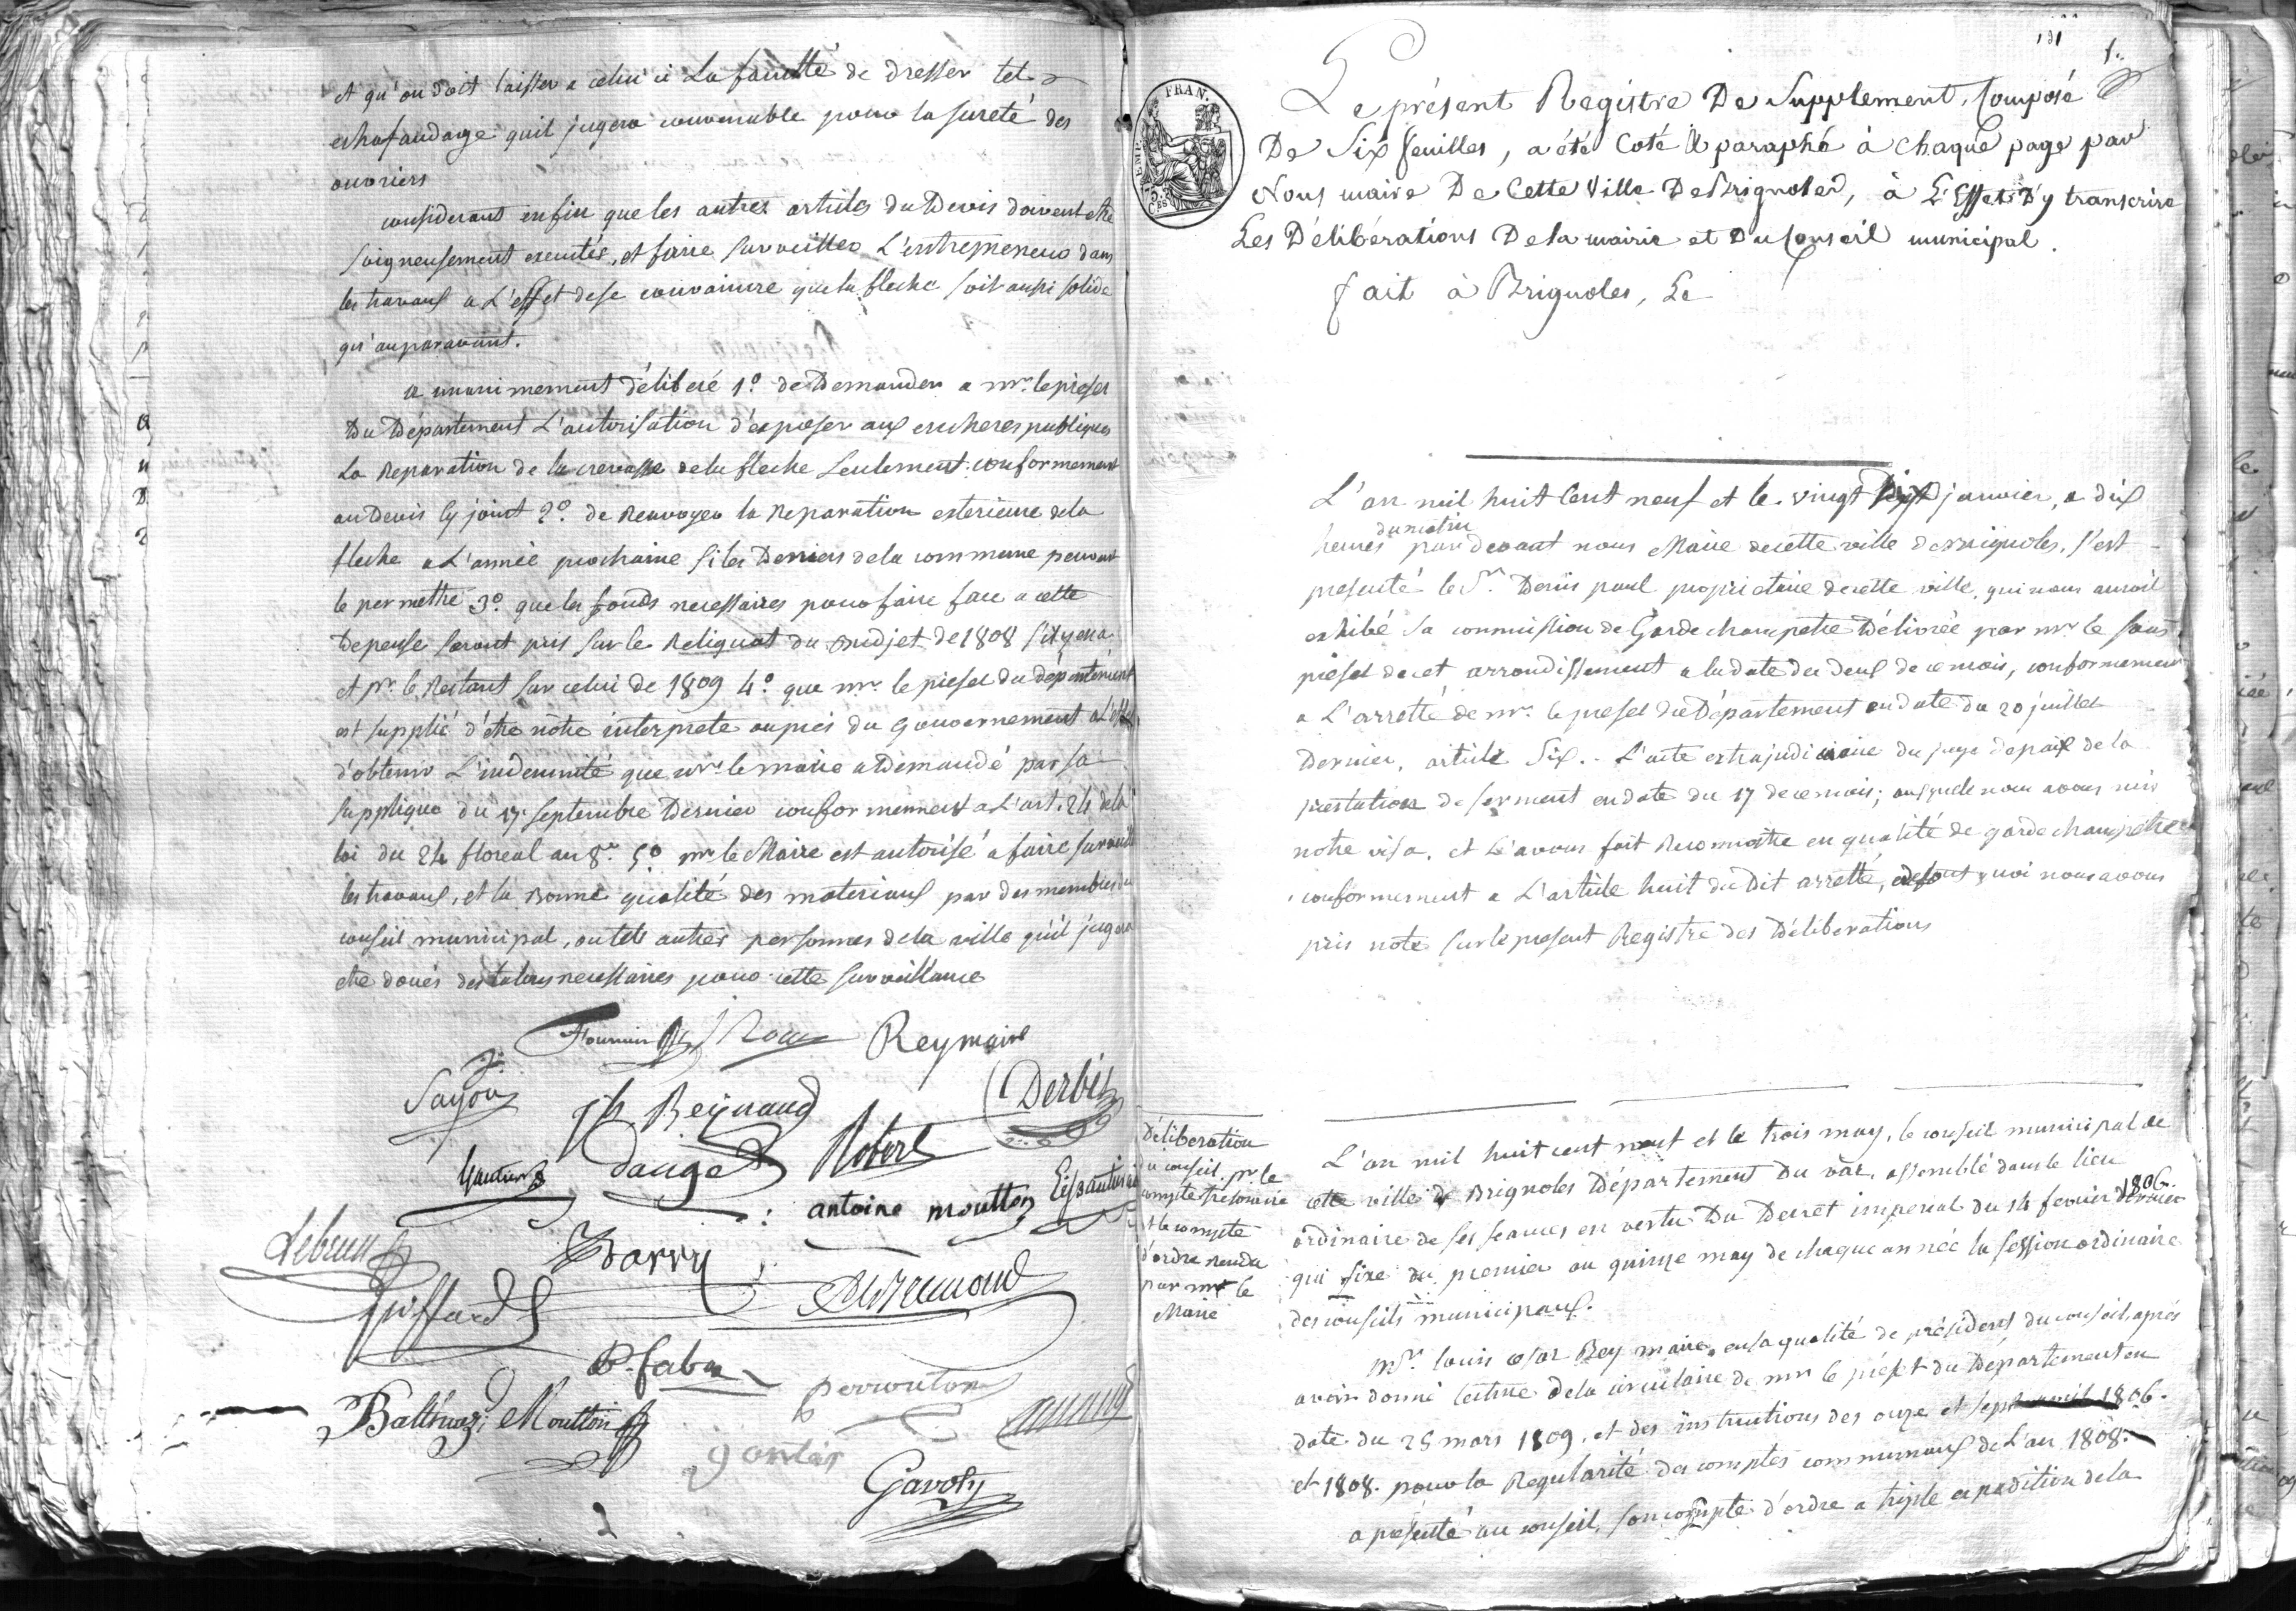 et qu'on doit laisser a celui ci la faculté de dresser tel
echafaudage qu'il jugera convenable pour la sureté des
ouvriers
considerant enfin que les autres articles du Devis doivent etre
soigneusement executés, et faire surveiller L'entrepreneur dans
les travaux a L'effet de se convaincre que la fleche soit aussi solide
qu'auparavant.
a unanimement délibéré 1º. de Demander a mr. le prefet
Du Département L'autorisation d'exposer aux encheres publiques
La Reparation de la crevasse de la fleche seulement conformement
au Devis cy joint 2º. de Renvoyer la Reparation exterieure de la
fleche a L'année prochaine si les Deniers de la commune peuvent
le permettre 3º. que les fonds necessaires pour faire face a cette
Depense seront pris sur le Reliquat du Budjet de 1808 s'il y en a
et pr. le Restant sur celui de 1809 4º. que mr. le prefet du département
est supplié d'être nôtre interprete auprès du Gouvernement a L'effet
d'obtenir L'indemnité que mr. le maire a Demandé par sa
supplique du 17 septembre Dernier conformement a L'art. 24 de la
loi du 24 floreal an 8e. 5º mr. le Maire est autorisé a faire surveiller
les travaux, et la Bonne qualité des materiaux par des membres du
conseil municipal, ou tels autres personnes de la ville qu'il jugera
etre doués des talens necessaires pour cette surveillance
Fournier Roux Rey maire
Sayou
Jh Reynaud Derbès
Gautier Dauge Robert
antoine moutton
Lebrun Barry
Giffard
P. fabre
Balthazar Moutton
Gavoty
2
131
1.
FRAN.
EMP.
Le présent Registre De Supplement, Composé
De Six feuilles, a été Coté & paraphé à Chaque page par
Nous maire De Cette Ville De Brignoles, à L'Effet D'y transcrire
Les Délibérations De la mairie et Du Conseil municipal.
fait à Brignoles, Le
L'an mil huit Cent neuf et le vingt sept janvier, a dix
heures du matin par devant nous Maire de cette ville de Brignoles, s'est
presenté le Sr. Denis paul proprietaire de cette ville, qui nous auroit
exhibé sa commission de Garde champetre Délivrée par mr. le sous
préfet de cet arrondissement a la date du deux de ce mois, conformement
a L'arretté de mr. le prefet du Département en date du 20 juillet
Dernier, article Six. L'acte extrajudiciaire du juge de paix de la
prestation de serment en date du 17 de ce mois; auxquels nous avons mis
notre visa, et L'avons fait Reconnoitre en qualité de garde champetre
conformement a L'article huit du Dit arretté, de tout quoi nous avons
pris note sur le present Registre des Délibérations
Déliberation
du conseil pr. le
compte trésorerie
et le compte
d'ordre rendu
par mr le
Maire
L'an mil huit cent neuf et le trois may, le conseil municipal de
cette ville de Brignoles Département Du var, assemblé dans le lieu
ordinaire de ses seances en vertu Du Decret imperial du 14 fevrier dernier 1806.
qui fixe du premier au quinze may de chaque année la session ordinaire
des conseils municipaux.
mr. louis cesar Rey maire, en sa qualité de président du conseil, après
avoir donné lecture de la circulaire de mr le préfet du Département en
date du 25 mars 1809, et des instructions des onze et sept avril 1806.
et 1808. pour la Regularité des comptes communaux de L'an 1808.
a présenté au conseil, son compte d'ordre a triple expedition de la